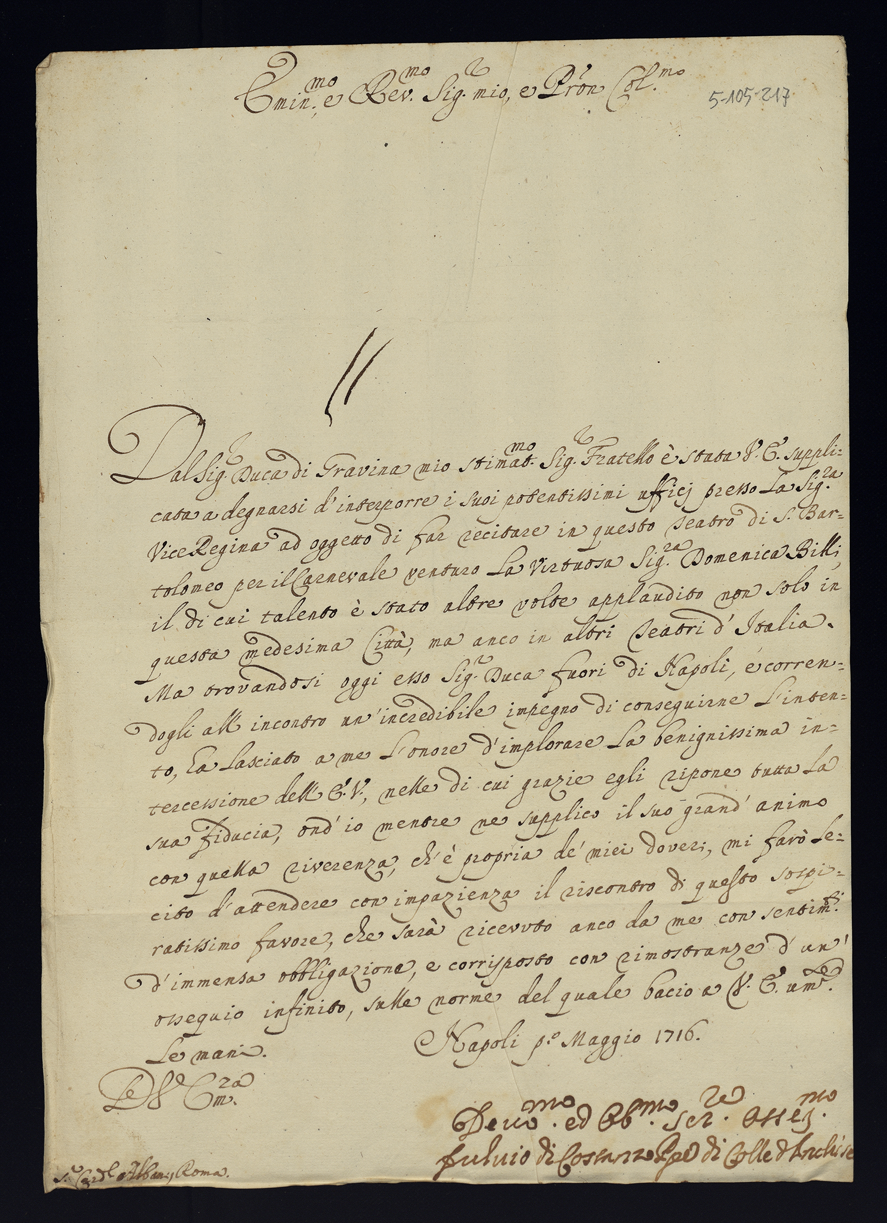 Emin.mo, e Rev.mo Sig.r mio, e Pron Col.mo
5-105-217
Dal Sig.r Duca di Gravina mio stimat.mo Sig.r Fratello è stata V. E. suppli=
cata a degnarsi d'interporre i suoi potentissimi ufficj presso La Sig.ra
ViceRegina ad oggetto di far recitare in questo Teatro di S. Bar=
tolomeo per il Carnevale venturo La Virtuosa Sig.ra Domenica Billi,
il di cui talento è stato altre volte applaudito non solo in
questa medesima Città, ma anco in altri Teatri d'Italia.
Ma trovandosi oggi esso Sig.r Duca fuori di Napoli, e corren=
dogli all'incontro un'incredibile impegno di conseguirne L'inten=
to, ha Lasciato a me L'onore d'implorare La benignissima in=
tercessione dell'E. V., nelle di cui grazie egli ripone tutta La
sua fiducia, ond'io mentre ne supplico il suo grand'animo
con quella riverenza, ch'è propria de' miei doveri, mi farò Le=
cito d'attendere con impazienza il riscontro di questo sospi=
ratissimo favore, che sarà ricevuto anco da me con sentim.ti
d'immensa obbligazione, e corrisposto con rimostranze d'un'
ossequio infinito, sulle norme del quale bacio a V. E. um.te
Le mani.
Napoli p.o Maggio 1716.
Di V. Em.za
Devo.mo ed Ob.mo ser.re osseq.mo
fulvio di Costanzo Ppe di Colle d'Anchise
S.r Card.l Albani, Roma.